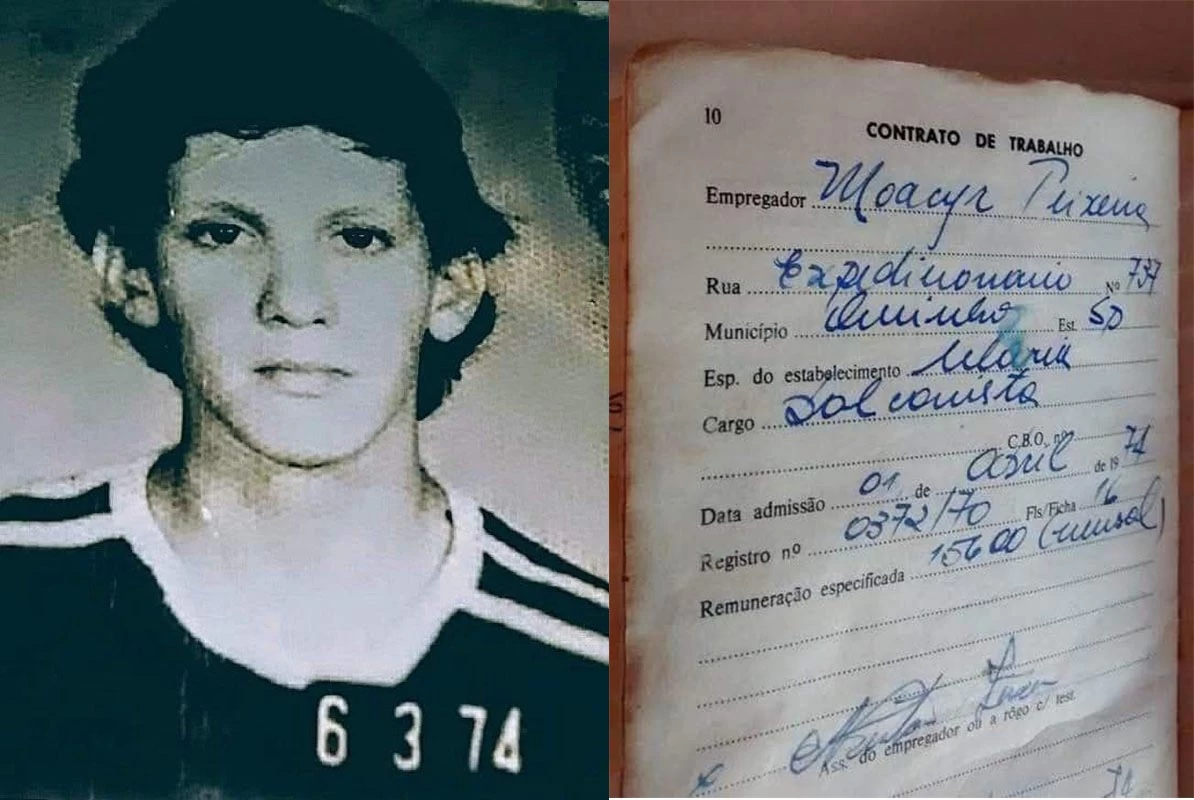 6 3 74
10
CONTRATO DE TRABALHO
Empregador Moacyr Teixeira
Rua Expedicionario Nº 737
Município Est. SP
Esp. do estabelecimento
Cargo Balconista
C.B.O. nº
Data admissão 01 de Abril de 1974
Registro nº 0372/70 Fls/Ficha 16
Remuneração especificada 15600 (mensal)
Ass. do empregador ou a rôgo c/ test.
74